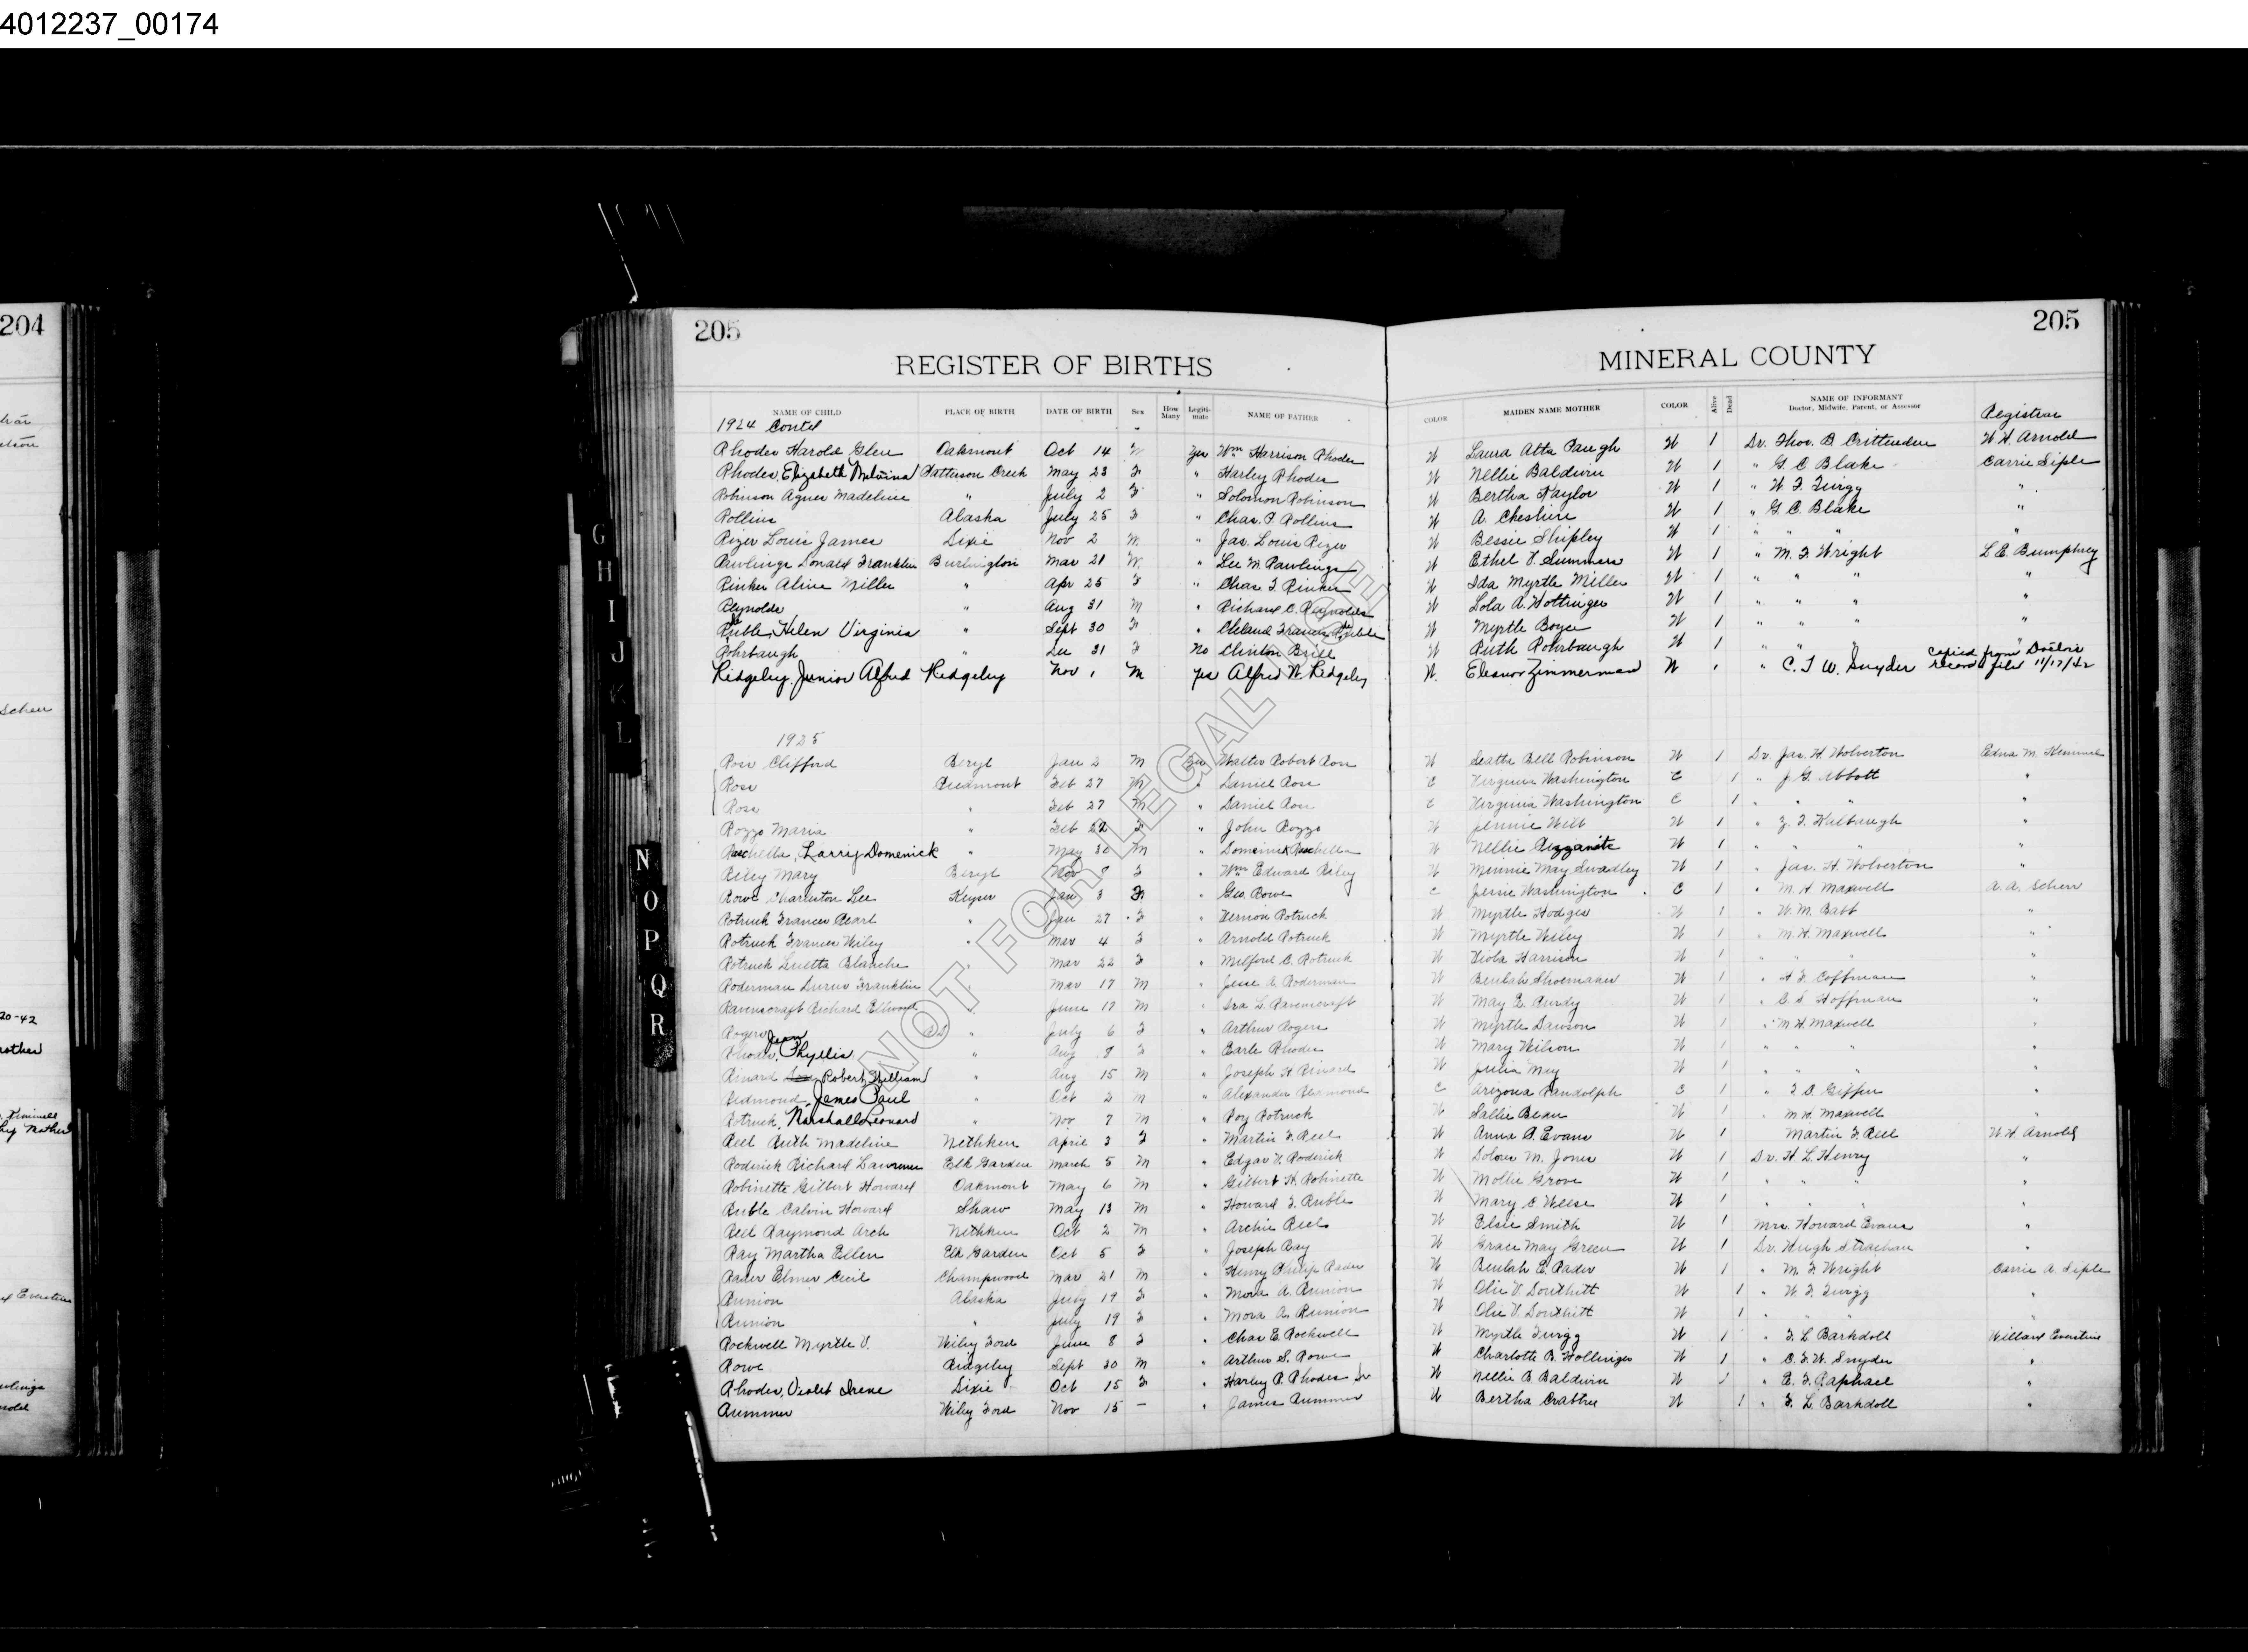 4012237_00174
204
205
205
REGISTER OF BIRTHS
MINERAL COUNTY
NAME OF CHILD PLACE OF BIRTH DATE OF BIRTH Sex How Many Legiti-mate NAME OF FATHER COLOR MAIDEN NAME MOTHER COLOR Alive Dead NAME OF INFORMANT Doctor, Midwife, Parent, or Assessor Registrar
1924 Contd
Rhodes Harold Glen Oakmont Oct 14 M yes Wm Harrison Rhodes W Laura Atta Paugh W 1 Dr. Thos. B Crittenden W. H. Arnold
Rhodes, Elizabeth Melvina Patterson Creek May 23 F " Harley Rhodes W Nellie Baldwin W 1 " G. C Blake Carrie Siple
Robinson Agnes Madeline " July 2 F " Solomon Robinson W Bertha Kaylor W 1 " W. F. Twigg "
Rollins Alaska July 25 F " Chas. P. Rollins W A. Cheshire W 1 " G. C. Blake "
Rizer Louis James Dixie Nov 2 M " Jas. Louis Rizer W Bessie Shipley W 1 " " "
Rawlings Donald Franklin Burlington Mar 21 M " Lee M. Rawlings W Ethel V. Summers W 1 " M. F. Wright L. E. Bumphrey
Rinker Aline Miller " Apr 25 F " Chas F. Rinker W Ida Myrtle Miller W 1 " " " "
Reynolds " Aug 31 M " Richard C. Reynolds W Lola A. Hottinger W 1 " " " "
Ruble, Helen Virginia " Sept 30 F " Cleland Francis Ruble W Myrtle Boyce W 1 " " "
Rohrbaugh " Dec 31 F No Clinton Brill W Ruth Rohrbaugh W 1 " "
Ridgeley, Junior Alfred Ridgeley Nov 1 M yes Alfred W. Ridgeley W. Eleanor Zimmerman W 1 " C. F. W. Snyder copied from Doctors record filed 11/17/42
1925
Ross Clifford Beryl Jan 2 M yes Walter Robert Ross W Seatta Bell Robinson W 1 Dr. Jas. H. Wolverton Edna M. Kimmel
Ross Piedmont Feb 27 M " Daniel Ross C Virginia Washington C 1 " J. G. Abbott "
Ross " Feb 27 M " Daniel Ross C Virginia Washington C 1 " " "
Rozzo Maria " Feb 22 F " John Rozzo W Jennie Welt W 1 " Z. T. Kalbaugh "
Raschella, Larry Domenick " May 30 M " Domenick Raschella W Nellie W 1 " " "
Riley Mary Beryl Nov 8 F " Wm Edward Riley W Minnie May Swadley W 1 " Jas. H. Wolverton "
Rowe Lee Keyser Jan 3 " Geo. Rowe C Jessie Washington C 1 " M. H Maxwell A. A. Scherr
Rotruck Frances Pearl " Jan 27 F " Vernon Rotruck W Myrtle Hodges W 1 " W. M. Babb "
Rotruck Frances Wiley " Mar 4 F " Arnold Rotruck W Myrtle Wiley W 1 " M. H. Maxwell "
Rotruck Luetta Blanche " Mar 22 F " Milford C. Rotruck W Viola Harrison W 1 " " " "
Roderman Franklin " Mar 17 M " Jesse E. Roderman W Beulah Shoemaker W 1 " A F. Coffman "
Ravenscraft Richard Ellwood " June 17 M " Ira L. Ravenscraft W May E. Purdy W 1 " C. S. Hoffman "
Rogers " July 6 F " Arthur Rogers W Myrtle Dawson W 1 " M H. Maxwell "
Rhodes, Phyllis Jean " Aug 8 F " Earle Rhodes W Mary Wilson W 1 " " " "
Rinard Robert William " Aug 15 M " Joseph H Rinard W Julia May W 1 " " "
Redmond, James Paul " Oct 2 M " Alexander Redmond C Arizona Randolph C 1 " T. C. Giffin "
Rotruck, Marshall Leonard " Nov 7 M " Roy Rotruck W Sallie Bean W 1 " M. H. Maxwell "
Reel Ruth Madeline Nethken April 3 F " Martin F. Reel W Anna S. Evans W 1 Martin F. Reel W. H. Arnold
Roderick Richard Lawrence Elk Garden March 5 M " Edgar V. Roderick W Dolores M. Jones W 1 Dr. H L. Henry "
Robinette Gilbert Howard Oakmont May 6 M " Gilbert H. Robinette W Mollie Grove W 1 " " " "
Ruble Calvin Howard Shaw May 13 M " Howard F. Ruble W Mary C Weese W 1 " " "
Reel Raymond Arch Nethken Oct 2 M " Archie Reel W Elsie Smith W 1 Mrs. Howard Evans "
Ray Martha Ellen Elk Garden Oct 5 F " Joseph Ray W Grace May Green W 1 Dr. Hugh Strachan "
Rader Elmer Cecil Champwood Mar 21 M " Henry Philip Rader W Beulah E. Rader W 1 " M. F. Wright Carrie A. Siple
Runion Alaska July 19 F " Mora A. Runion W Olie V. Douthitt W 1 " W. F. Twigg "
Runion " July 19 F " Mora A. Runion W Olie V. Douthitt W 1 " " "
Rockwell Myrtle V. Wiley Ford June 8 F " Chas E. Rockwell W Myrtle Twigg W 1 " F. L. Barkdoll Willard Everstine
Rowe Ridgeley Sept 30 M " Arthur S. Rowe W Charlotte B. Hollinger W 1 " C. F. W. Snyder "
Rhodes, Violet Irene Dixie Oct 15 F " Harley P. Rhodes Jr W Nellie B Baldwin W 1 " E. F. Raphael "
Rummer Wiley Ford Nov 15 - " James Rummer W Bertha Crabtree W 1 " F. L. Barkdoll "
NOT FOR LEGAL USE
G
H
I
J
K
L
N
O
P
Q
R